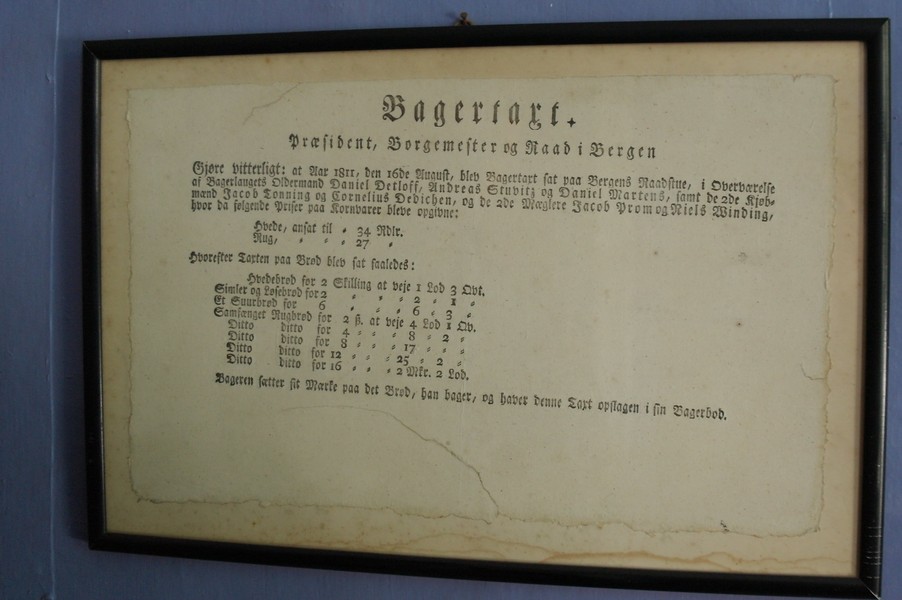 Bagertaxt.
Præsident, Borgemester og Raad i Bergen
Gjøre vitterligt: at Aar 1811, den 16de August, blev Bagertaxt sat paa Bergens Raadstue, i Overværelse
af Bagerlaugets Oldermand Daniel Detloff, Andreas Stuvitz og Daniel Martens, samt de 2de Kjøb-
mænd Jacob Tonning og Cornelius Dedichen, og de 2de Mæglere Jacob Prom og Niels Winding,
hvor da følgende Priser paa Kornvarer bleve opgivne:
Hvede, ansat til " 34 Rdlr.
Rug, " " " 27 "
Hvorefter Taxten paa Brød blev sat saaledes:
Hvedebrød for 2 Skilling at veje 1 Lod 3 Qvt.
Simler og Løsebrød for 2 " " " 2 " 1 "
Et Suurbrød for 6 " " " 6 " 3 "
Samfænget Rugbrød for 2 ß. at veje 4 Lod 1 Qv.
Ditto ditto for 4 " " " 8 " 2 "
Ditto ditto for 8 " " " 17 " " "
Ditto ditto for 12 " " " 25 " 2 "
Ditto ditto for 16 " " " 2 Mkr. 2 Lod.
Bageren sætter sit Mærke paa det Brød, han bager, og haver denne Taxt opslagen i sin Bagerbod.